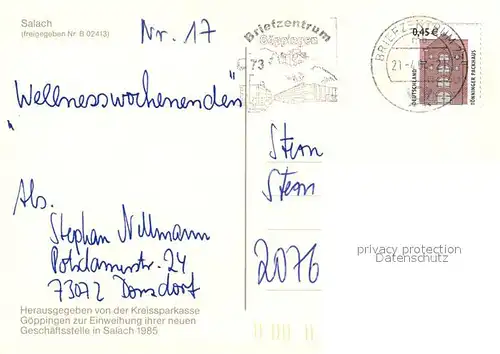 Salach
(freigegeben Nr B 02413)
Nr. 17
Briefzentrum
Göppingen
73
BRIEFZENTRUM 73
0,45 €
DEUTSCHLAND
TÖNNINGER PACKHAUS
"Wellnesswochenenden"
Stern
Stern
2076
Abs.
Stephan Nillmann
Potsdamerstr. 24
73072 Donzdorf
privacy protection
Datenschutz
Herausgegeben von der Kreissparkasse
Göppingen zur Einweihung ihrer neuen
Geschäftsstelle in Salach 1985